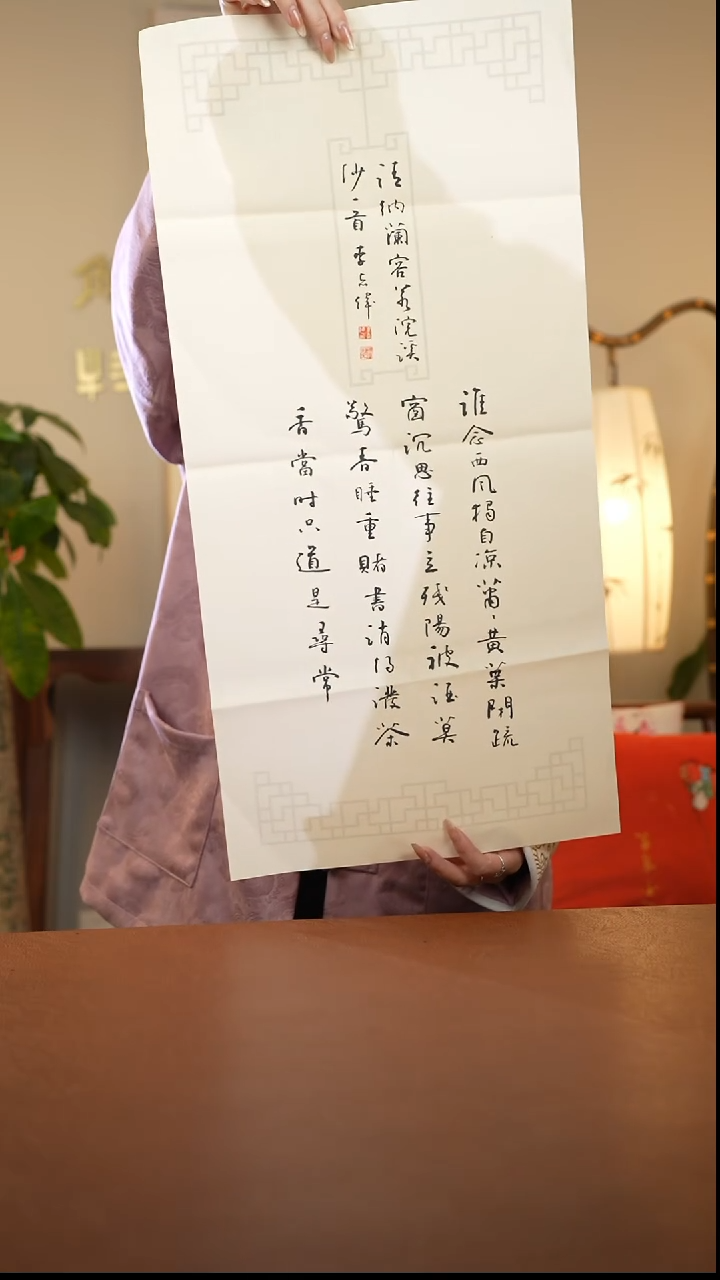 清纳蘭容若浣溪
沙一首 李志偉
誰念西风獨自凉蕭、黄葉閉疏
窗沉思往事立残陽被酒莫
驚春睡重賭書消得潑茶
香當时只道是尋常